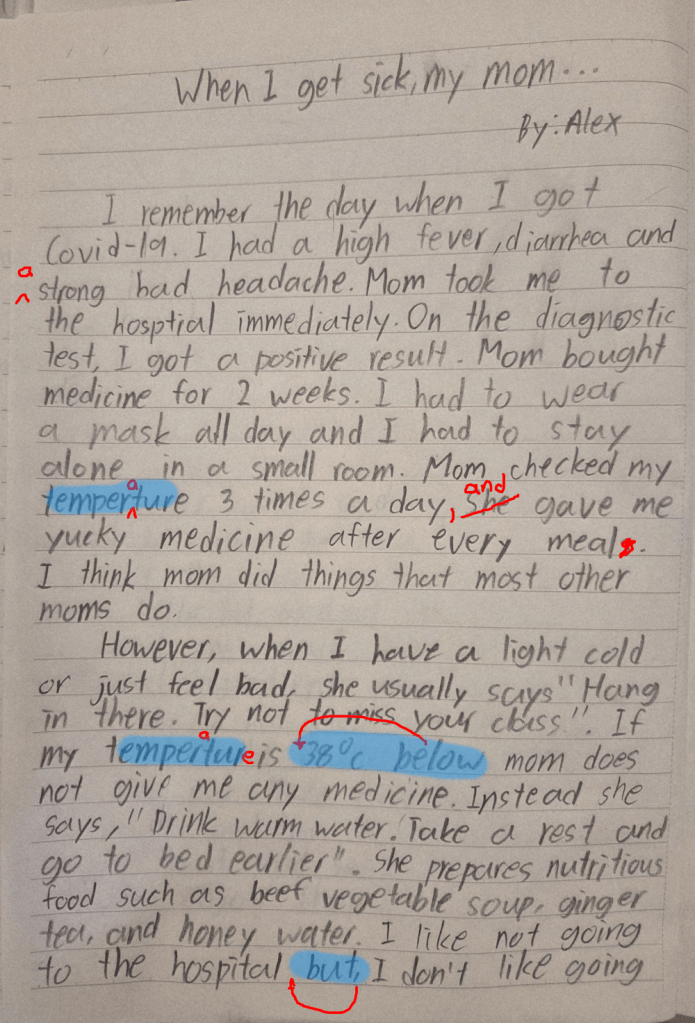 When I get sick, my mom...
By: Alex
I remember the day when I got
Covid-19. I had a high fever, diarrhea and
a
^ strong bad headache. Mom took me to
the hosptial immediately. On the diagnostic
test, I got a positive result. Mom bought
medicine for 2 weeks. I had to wear
a mask all day and I had to stay
alone in a small room. Mom checked my
a and
temperture 3 times a day, she gave me
^
yucky medicine after every meals.
I think mom did things that most other
moms do.
However, when I have a light cold
or just feel bad, she usually says "Hang
in there. Try not to miss your class". If
a
my temperture is 38°c below mom does
not give me any medicine. Instead she
says, "Drink warm water. Take a rest and
go to bed earlier". She prepares nutritious
food such as beef vegetable soup, ginger
tea, and honey water. I like not going
to the hospital but, I don't like going